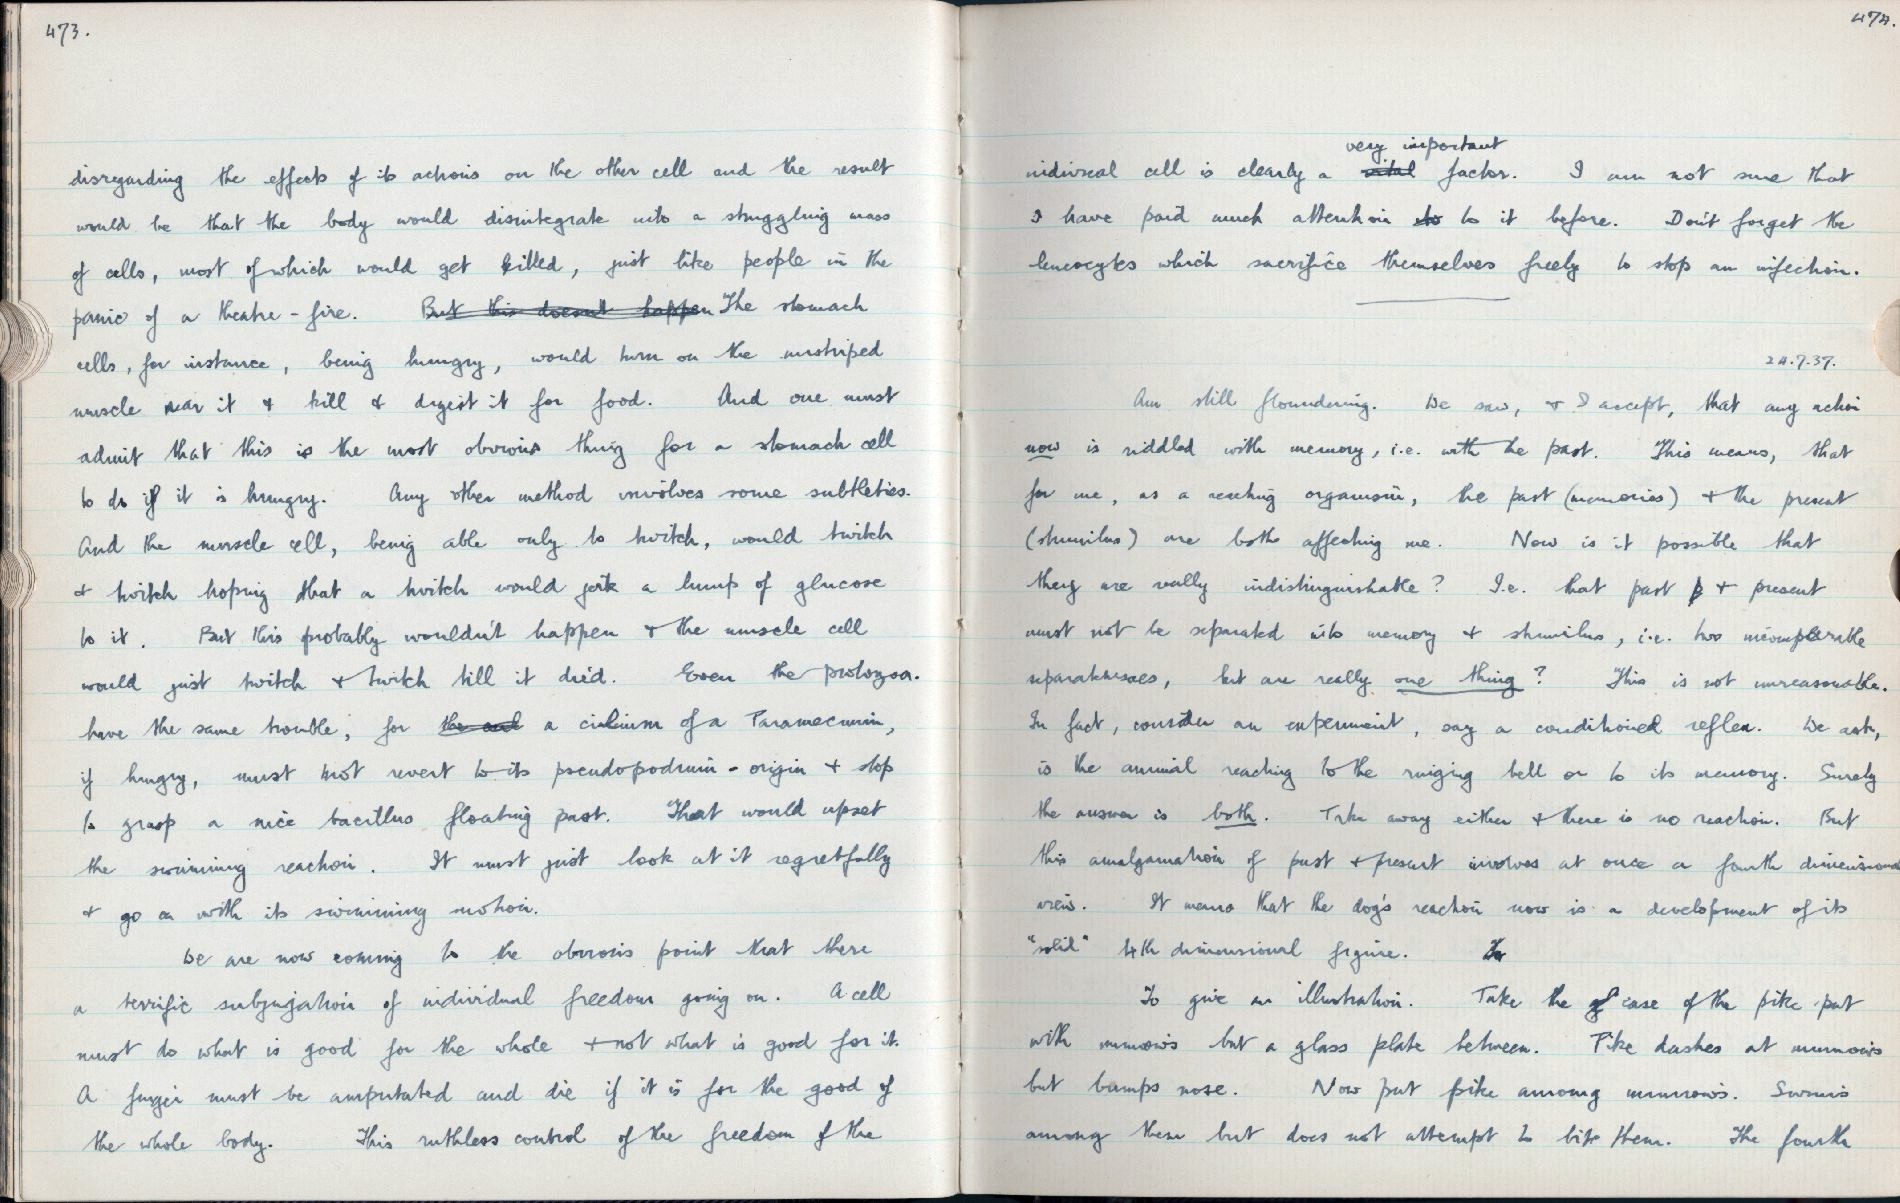 473.
disregarding the effects of its actions on the other cell and the result
would be that the body would disintegrate into a struggling mass
of cells, most of which would get killed, just like people in the
panic of a theatre-fire. But this doesn't happen The stomach
cells, for instance, being hungry, would turn on the unstriped
muscle near it & kill & digest it for food. And one must
admit that this is the most obvious thing for a stomach cell
to do if it is hungry. Any other method involves some subtleties.
And the muscle cell, being able only to twitch, would twitch
& twitch hoping that a twitch would jerk a lump of glucose
to it. But this probably wouldn't happen & the muscle cell
would just twitch & twitch till it died. Even the protozoa.
have the same trouble, for the and a cilium of a Paramecium,
if hungry, must not revert to its pseudopodium-origin & stop
to grasp a nice bacillus floating past. That would upset
the swimming reaction. It must just look at it regretfully
& go on with its swimming motion.
We are now coming to the obvious point that there
a terrific subjugation of individual freedom going on. A cell
must do what is good for the whole & not what is good for it.
A finger must be amputated and die if it is for the good of
the whole body. This ruthless control of the freedom of the
474.
very important
individual cell is clearly a vital factor. I am not sure that
I have paid much attention to to it before. Don't forget the
leucocytes which sacrifice themselves freely to stop an infection.
24.7.37.
Am still floundering. We saw, & I accept, that any action
now is riddled with memory, i.e. with the past. This means, that
for me, as a reacting organism, the past (memories) & the present
(stimulus) are both affecting me. Now is it possible that
they are really indistinguishable? I.e. that past p & present
must not be separated into memory & stimulus, i.e. two incomparable
separatenesses, but are really one thing? This is not unreasonable.
In fact, consider an experiment, say a conditioned reflex. We ask,
is the animal reacting to the ringing bell or to its memory. Surely
the answer is both. Take away either & there is no reaction. But
this amalgamation of past & present involves at once a fourth dimensional
view. It means that the dog's reaction now is a development of its
"solid" 4th dimensional figure. To
To give an illustration. Take the of case of the pike put
with minnows but a glass plate between. Pike dashes at minnows
but bumps nose. Now put pike among minnows. Swims
among them but does not attempt to bite them. The fourth